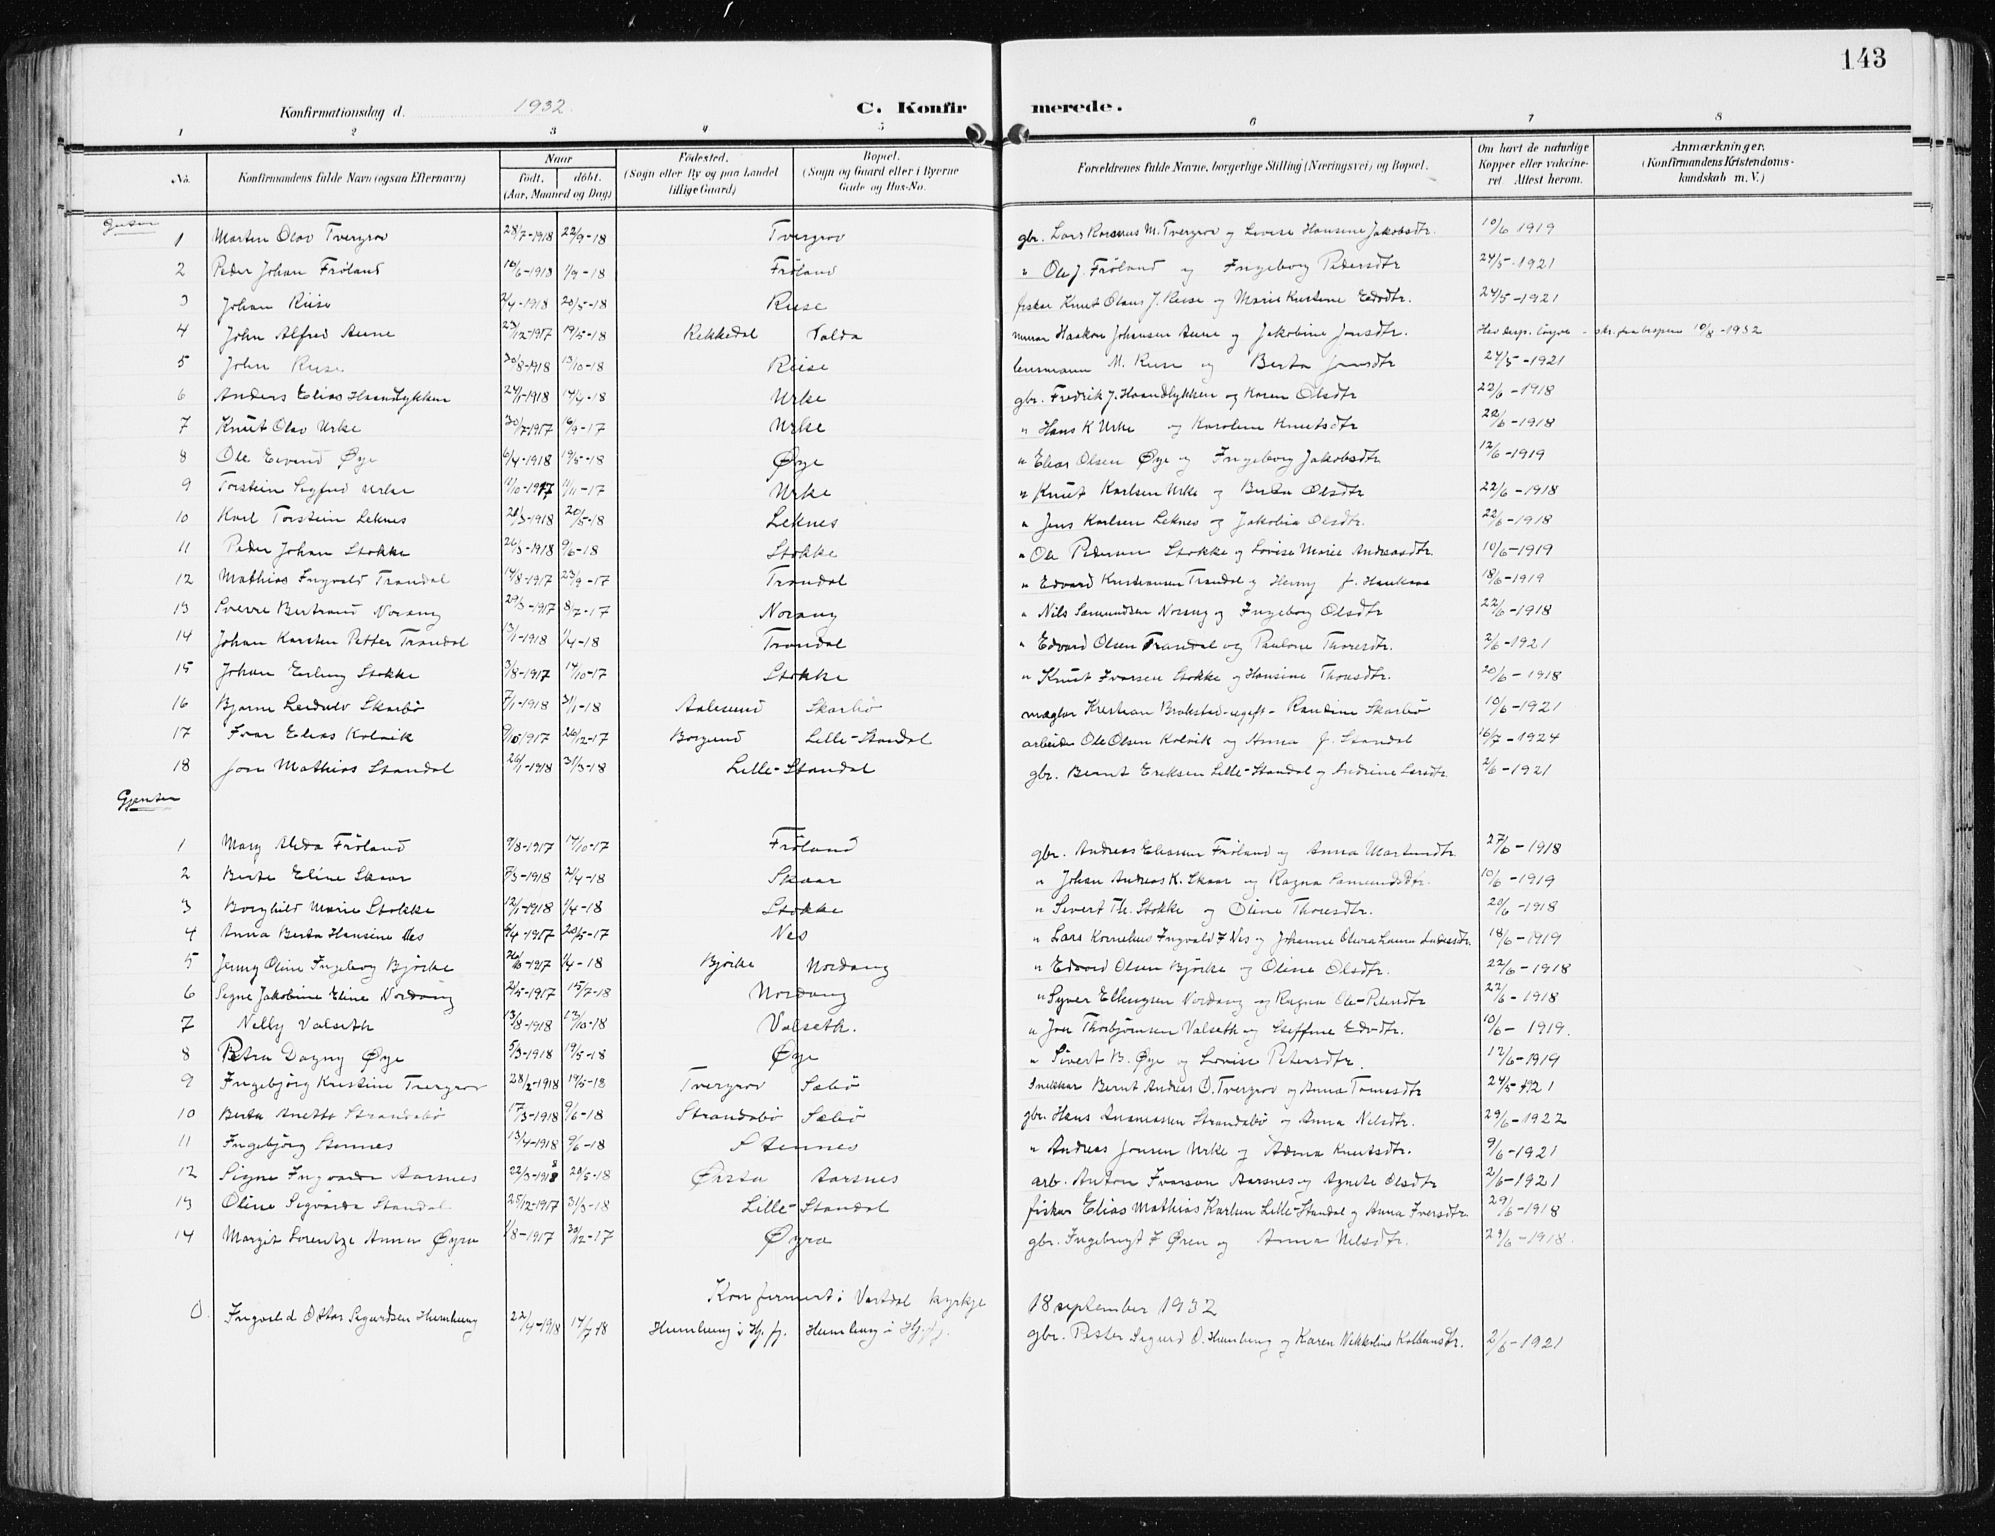 143
Konfirmationsdag d. 1932. C. Konfirmerede.
1 2 3 4 5 6 7 8
No. Konfirmandens fulde Navn (ogsaa Efternavn) Naar født. døbt. (Aar, Maaned og Dag) Fødested. (Sogn eller By og paa Landet tillige Gaard) Bopæl. (Sogn og Gaard eller i Byerne Gade og Hus-No. Forældrenes fulde Navne, borgerlige Stilling (Næringsvei) og Bopæl. Om havt de naturlige Kopper eller vaccineret. Attest herom. Anmærkninger. (Konfirmandens Kristendomskundskab m. V.)
Guter
1 Martin Olav Tvergrov 28/7-1918 22/9-18 Tvergrov gbr. Lars Rasmus M. Tvergrov og Lovise Hansine Jakobsdtr. 10/6 1919
2 Peder Johan Frøland 16/6-1918 1/9-18 Frøland " Ole J. Frøland og Ingeborg Pedersdtr 24/5-1921
3 Johan Riise 2/4-1918 20/5-18 Riise fiskar Knut Olaus J. Riise og Marie Kristine Edvdtr. 24/5-1921
4 John Alfred Aune 23/12-1917 19/5-18 Rekkedal Volda Haakon Johansen Aune og Jakobine Jonsdtr. løyve - frå bispen 10/8-1932
5 John Riise 30/8-1918 13/10-18 Riise lensmann M. Riise og Berta Jonsdtr 24/5-1921
6 Anders Elias Haandlykken 24/1-1918 14/4-18 Urke gbr. Fredrik J. Haandlykken og Karen Olsdtr 22/6-1918
7 Knut Olav Urke 30/7-1917 16/9-17 Urke " Hans K Urke og Karoline Knutsdtr 22/6-1918
8 Ole Eivind Øye 6/4-1918 19/5-18 Øye " Elias Olsen Øye og Ingeborg Jakobsdtr 12/6-1919
9 Torstein Sigfred Urke 11/10-1917 11/11-17 Urke " Knut Karlsen Urke og Berta Olsdtr 22/6-1918
10 Karl Torstein Leknes 20/3-1918 20/5-18 Leknes " Jens Karlsen Leknes og Jakobia Olsdtr. 22/6-1918
11 Peder Johan Stokke 26/3-1918 9/6-18 Stokke " Ole Pedersen Stokke og Lovise Marie Andreasdtr. 10/6-1919
12 Mathias Ingvald Trandal 14/8-1917 23/9-17 Trandal " Edvard Kristiansen Trandal og Henny f. 18/6-1919
13 Sverre Bertrand Norang 29/3-1917 8/7-17 Norang " Nils Samundsen Norang og Ingeborg Olsdtr 22/6-1918
14 Johan Karsten Petter Trandal 13/1-1918 1/4-18 Trandal " Edvard Olsen Trandal og Pauline Thoresdtr. 2/6-1921
15 Johan Erling Stokke 3/8-1917 14/10-17 Stokke " Knut Ivarsen Stokke og Hansine Thoresdtr. 20/6-1918
16 Bjarne Leidulv Skarbø 7/1-1918 31/1-18 Aalesund Skarbø mæglar Kristian Brakstad-ugift- Randine Skarbø 10/6-1921
17 Ivar Elias Kolvik 9/10 1917 26/12-17 Borgund Lille-Standal arbeider Ole Olsen Kolvik og Anna f. Standal 16/7-1924
18 Jon Mathias Standal 26/1-1918 31/3-18 Lille-Standal gbr. Bernt Eriksen Lille-Standal og Andrine Larsdtr. 2/6-1921
Gjenter
1 Mary Alida Frøland 9/8-1917 14/10-17 Frøland gbr. Andreas Eliassen Frøland og Anna Martinsdtr. 27/6-1918
2 Berte Eline Skaar 7/3-1918 21/4-18 Skaar " Johan Andreas K. Skaar og Ragna Samundsdtr. 10/6-1919
3 Borghild Marie Stokke 12/1-1918 1/4-18 Stokke " Sivert Th. Stokke og Oline Thoresdtr. 20/6-1918
4 Anna Berta Hansine Nes 5/4-1917 20/5-17 Nes " Lars Kornelius Ingvald I Nes og Johanne Olivia Laura 18/6-1919
5 Jenny Oline Ingeborg Bjørke 26/6-1917 1/4-18 Bjørke Nordang " Edvard Olsen Bjørke og Oline Olsdtr. 22/6-1918
6 Signe Jakobine Eline Nordang 21/5-1917 15/7-18 Nordang " Syver Ellingsen Nordang og Ragna Ole-Petersdtr 22/6-1918
7 Nelly Valseth 13/8-1918 13/10-18 Valseth. " Jon Thorbjørnsen Valseth og Steffine Edvdtr. 10/6-1919.
8 Petra Dagny Øye 5/3-1918 19/5-18 Øye " Sivert B. Øye og Lovise Petersdtr. 12/6-1919
9 Ingebjørg Kristine Tvergrov 28/2-1918 19/5-18 Tvergrov Sæbø Snekkar Bernt Andreas O. Tvergrov og Anna Tomasdtr 24/5-1921
10 Berta Anetta Strandabø 17/3-1918 9/6-18 Strandabø Sæbø gbr. Hans Rasmussen Strandabø og Anna Nilsdtr. 29/6-1922
11 Ingebjørg Stennes 13/4-1918 9/6-18 Stennes " Andreas Jonsen Urke og Adina Knutsdtr. 9/6-1921
12 Signe Ingvarda Aarsnes 22/3-1918 20/5-18 Ørsta Aarsnes arb. Anton Ivarson Aarsnes og Agnete Olsdtr 2/6-1921
13 Oline Sigvarda Standal 25/12-1917 31/3-18 Lille-Standal fiskar Elias Mathias Karlsen Lille-Standal og Anna Iversdtr. 29/6-1918
14 Margit Lorentze Anna Øyra 1/8-1917 30/12-17 Øyra gbr. Ingebrigt I Øren og Anna Nilsdtr. 29/6-1918.
Konfirmert i Vartdal kyrkje 18 september 1932
O. Ingvald Ottar Sigurdsen Humlung 22/4-1918 14/7-18 Humlung i Hj.fj. Humlung i Hj.fj. gbr. Petter Sigurd O. Humlung og Karen Nikoline Kolbensdtr. 2/6-1921